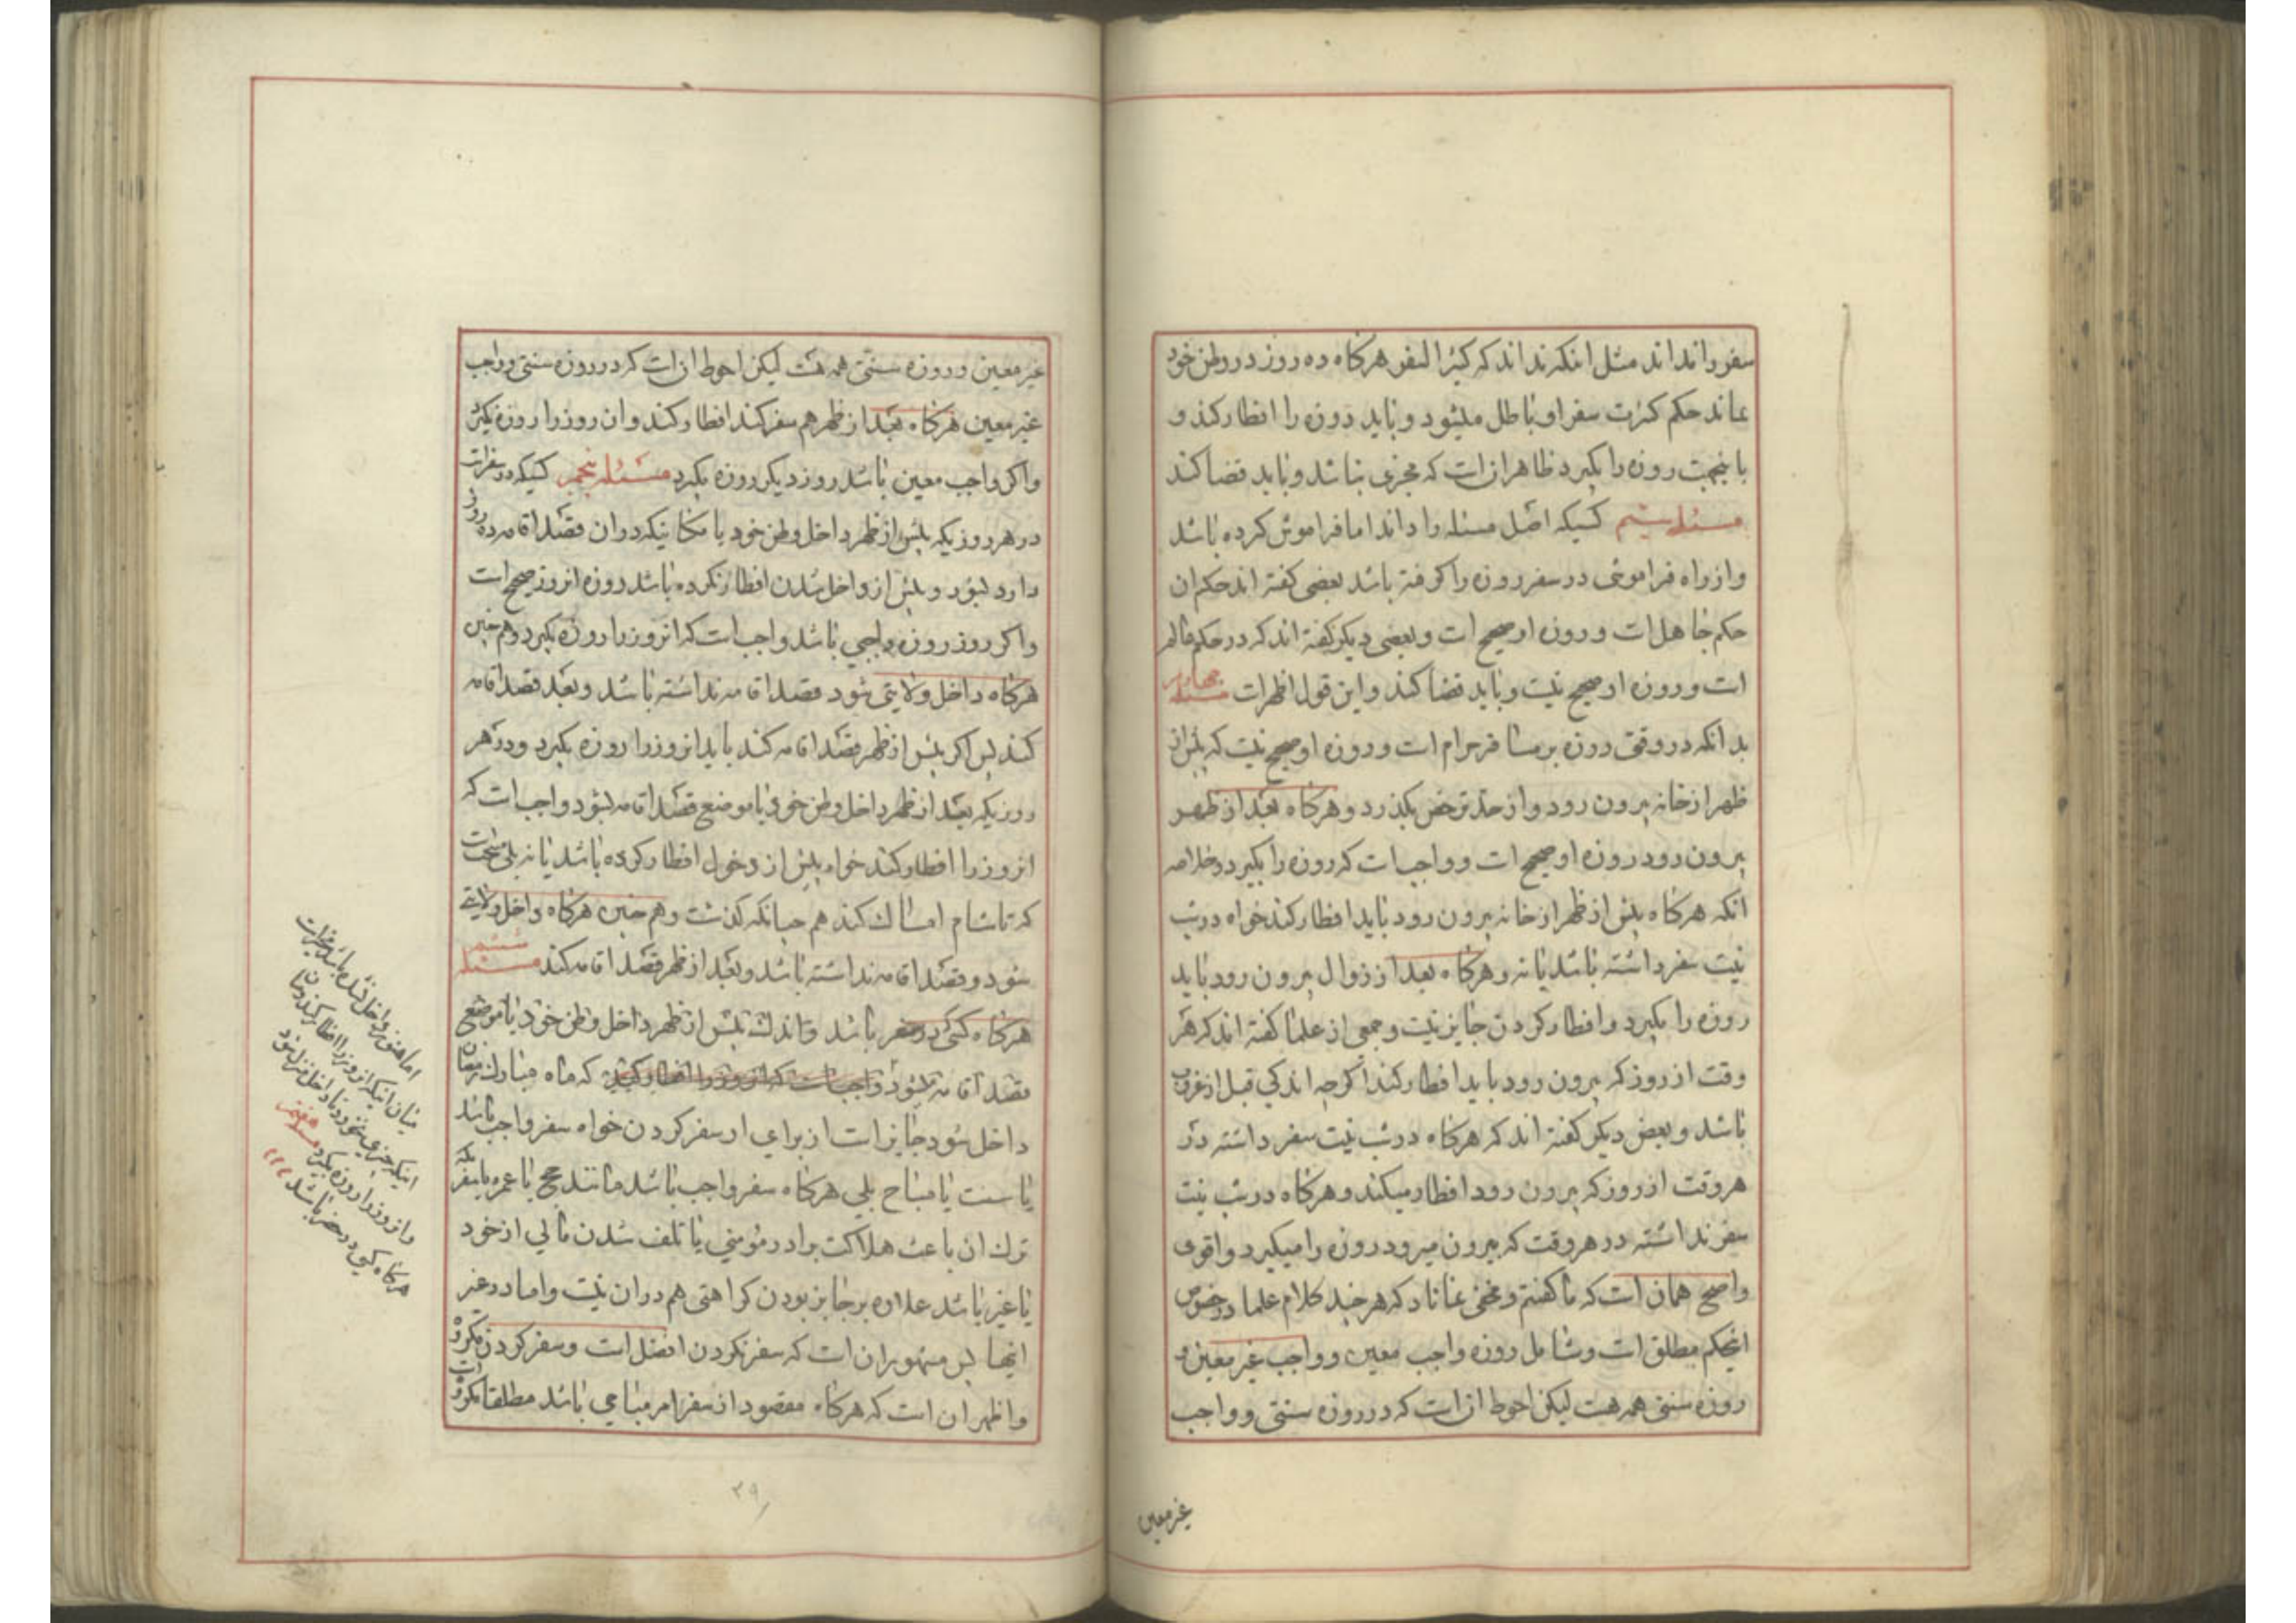 سفر را نداند مثل انکه نداند که کثیر السفر هرکاه ده روز در وطن خود
بماند حکم کثرت سفر او باطل میشود و باید روزه را افطار کند و
باینجهت روزه را بکیرد ظاهر ان است که مجزی نباشد و باید قضا کند
مسئله سیم کسیکه اصل مسئله را داند اما فراموش کرده باشد
و از راه فراموشی در سفر روزه را کرفته باشد بعضی کفته اند حکم ان
حکم جاهل است و روزه او صحیح است و بعضی دیکر کفته اند که در حکم عالم
است و روزه او صحیح نیست و باید قضا کند و این قول اظهر است مسئله چهارم
بدانکه در وقتی روزه بر مسافر حرام است و روزه او صحیح نیست که پیش از
ظهر از خانه بیرون رود و از حد ترخص بکذرد و هرکاه بعد از ظهر
بیرون رود روزه او صحیح است و واجب است که روزه را بکیرد و خلاصه
انکه هرکاه پیش از ظهر از خانه بیرون رود باید افطار کند خواه در شب
نیت سفر داشته باشد یا نه و هرکاه بعد از زوال بیرون رود باید
روزه را بکیرد و افطار کردن جایز نیست و جمعی از علما کفته اند که هر
وقت از روز که بیرون رود باید افطار کند اکرچه اندکی قبل از غروب
باشد و بعض دیکر کفته اند که هرکاه در شب نیت سفر داشته در
هر وقت از روز که بیرون رود افطار میکند و هرکاه در شب نیت
سفر نداشته در هر وقت که بیرون میرود روزه را میکیرد و اقوی
و اصح همان است که ما کفتیم و مخفی نماناد که هر چند کلام علما در خصوص
اینحکم مطلق است و شامل روزه واجب معین و واجب غیر معین و
روزه سنتی همه هست لیکن احوط ان است که در روزه سنتی و واجب
غیر معین
غیر معین و روزه سنتی همه هست لیکن احوط ان است که در روزه سنتی و واجب
غیر معین هرکاه بعد از ظهر هم سفر کند افطار کند و ان روز را روزه نکیرد
و اکر واجب معین باشد روز دیکر روزه بکیرد مسئله پنجم کسیکه در سفر است
در هر روزیکه پیش از ظهر داخل وطن خود یا مکانیکه در ان قصد اقامه ده روز
دارد بشود و پیش از داخل شدن افطار نکرده باشد روزه انروز صحیح است
و اکر روز روزه واجبی باشد واجب است که انروز را روزه بکیرد و هم چنین
هرکاه داخل ولایتی شود و قصد اقامه نداشته باشد و بعد قصد اقامه
کند پس اکر پیش از ظهر قصد اقامه کند باید انروز را روزه بکیرد و در هر
روزیکه بعد از ظهر داخل وطن خود یا موضع قصد اقامه بشود واجب است که
انروز را افطار کند خواه پیش از دخول افطار کرده باشد یا نه بلی مستحب است
که تا شام امساک کند هم چنانکه کذشت و هم چنین هرکاه داخل ولایتی
شود و قصد اقامه نداشته باشد و بعد از ظهر قصد اقامه کند مسئله ششم
هرکاه کسی در سفر باشد و اندک پیش از ظهر داخل وطن خود یا موضع
قصد اقامه میشود واجب است که انروز را افطار کند که ماه مبارک رمضان
داخل شود جایز است از برای او سفر کردن خواه سفر واجب باشد
یا سنت یا مباح بلی هرکاه سفر واجب باشد مانند حج یا عمره یا سفریکه
ترک ان باعث هلاکت برادر مؤمنی یا تلف شدن مالی از خود
یا غیر باشد علاوه بر جایز بودن کراهتی هم در ان نیست و اما در غیر
اینها پس مشهور ان است که سفر نکردن افضل است و سفر کردن مکروه است
و اظهر ان است که هرکاه مقصود از سفر امر مباحی باشد مطلقا مکروه
اما هنوز داخل نشده باشد مخیر است
میان اینکه انروز را افطار کند و میان
اینکه چیزی نخورد تا داخل منزل شود
و انروز را روزه بکیرد مسئله هفتم
هرکاه کسی در حضر باشد
۳۹